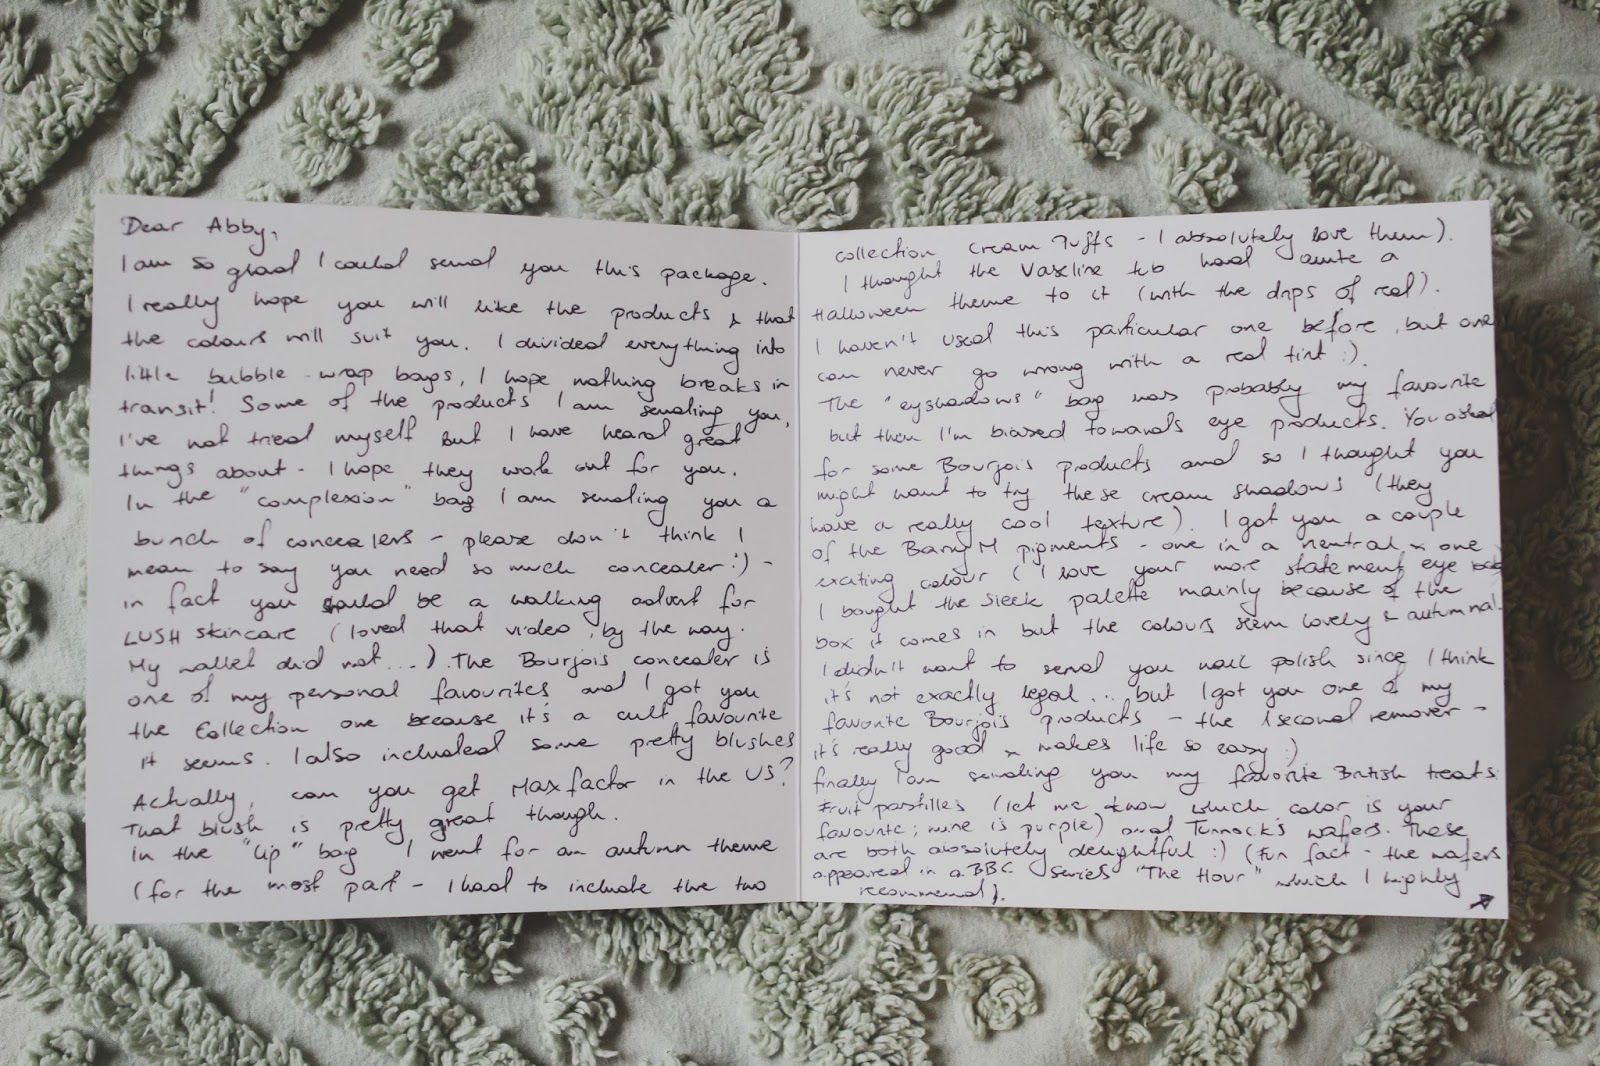 Dear Abby,
I am so glad I could send you this package.
I really hope you will like the products & that
the colours will suit you. I divided everything into
little bubble-wrap bags, I hope nothing breaks in
transit! Some of the products I am sending you,
I've not tried myself but I have heard great
things about - I hope they work out for you.
In the "complexion" bag I am sending you a
bunch of concealers - please don't think I
mean to say you need so much concealer :) -
in fact you could be a walking advert for
LUSH skincare (loved that video, by the way.
My wallet did not...). The Bourjois concealer is
one of my personal favourites and I got you
the Collection one because it's a cult favourite
it seems. I also included some pretty blushes
Actually, can you get Max factor in the US?
That blush is pretty great though.
In the "lip" bag I went for an autumn theme
(for the most part - I had to include the two
collection cream Puffs - I absolutely love them).
I thought the Vaseline tub had quite a
Halloween theme to it (with the drips of red).
I haven't used this particular one before, but one
can never go wrong with a red tint :).
The "eyshadows" bag was probably my favourite
but then I'm biased towards eye products. You asked
for some Bourjois products and so I thought you
might want to try these cream shadows (they
have a really cool texture). I got you a couple
of the Barry M pigments - one in a neutral & one
exciting colour (I love your more statement eye
I bought the Sleek palette mainly because of the
box it comes in but the colours seem lovely & autumnal.
I didn't want to send you nail polish since I think
it's not exactly legal... but I got you one of my
favorite Bourjois products - the 1 second remover -
it's really good & makes life so easy :)
finally I am sending you my favorite British treats
Fruit pastilles (let me know which color is your
favourite; mine is purple) and Tunnock's wafers. These
are both absolutely delightful :) (Fun fact - the wafers
appeared in a BBC series "The Hour" which I highly
recommend).